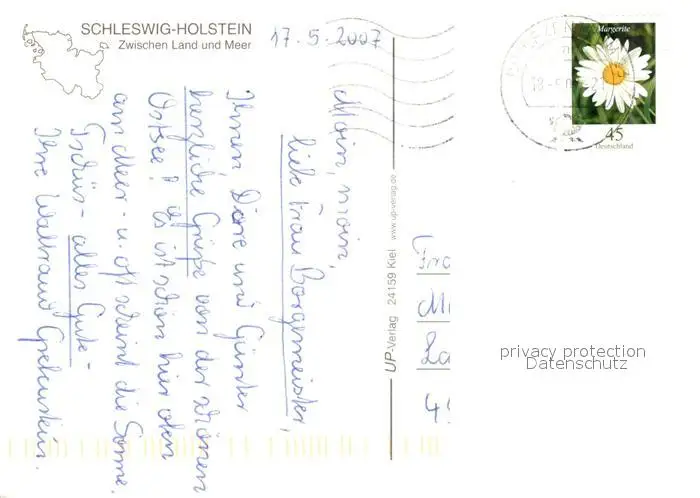 SCHLESWIG-HOLSTEIN
Zwischen Land und Meer
17.5.2007
Moin, moin,
liebe Frau Borgemeister,
Ihnen Dore und Günter
herzliche Grüße von der schönen
Ostsee! Es ist schön hier oben
am Meer - u. oft scheint die Sonne.
Tschüs - alles Gute -
Ihre Waltraud
UP-Verlag 24159 Kiel www.up-verlag.de
Margerite
45
Deutschland
privacy protection
Datenschutz